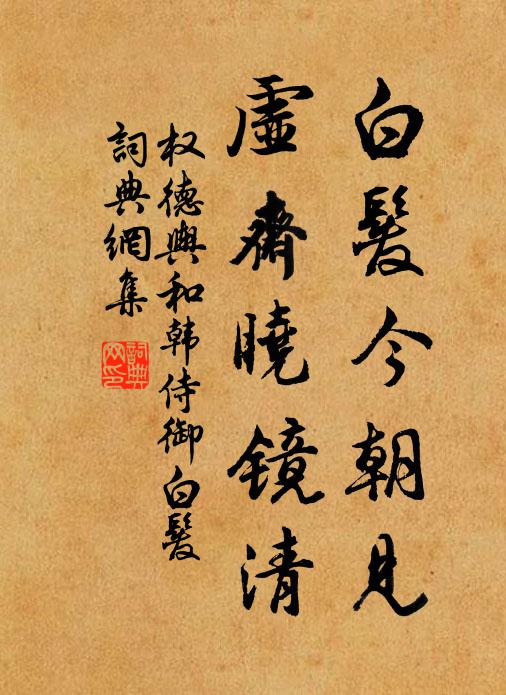 白髮今朝見
虛齋曉鏡清
权德輿和韩侍御白髮
詞典網集
詞典网印